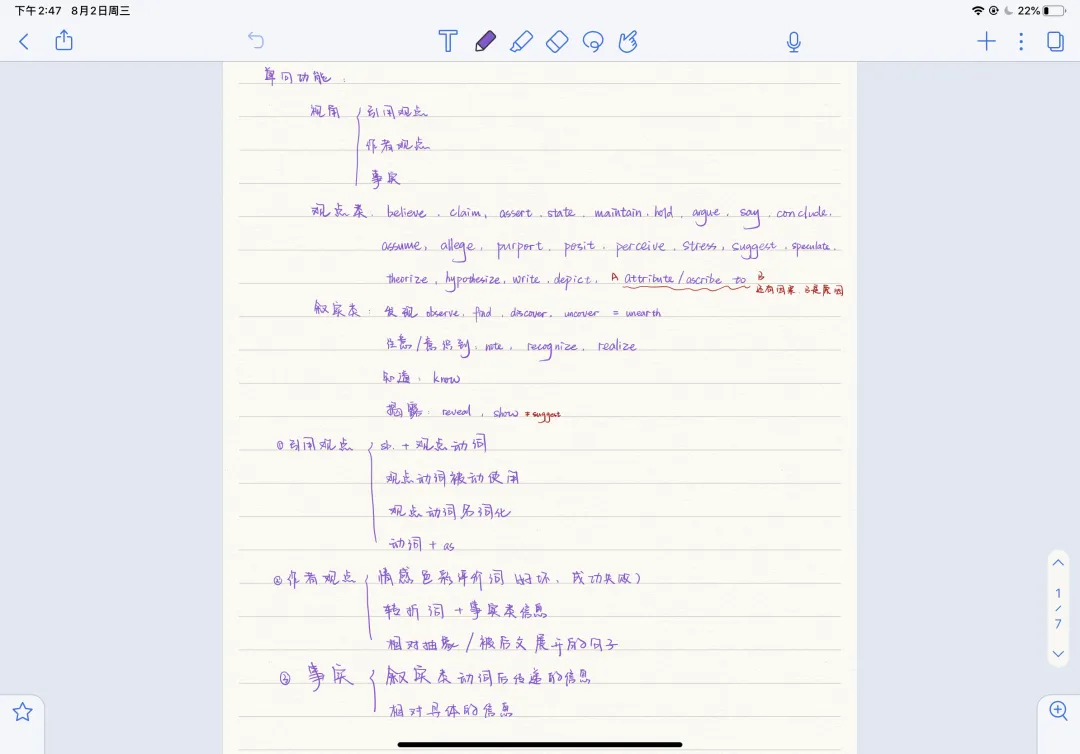 下午2:47 8月2日周三
22%
单句功能：
视角 引用观点
作者观点
事实
观点类. believe. claim, assert. state. maintain. hold. argue. say. conclude.
assume, allege. purport. posit. perceive. stress. suggest. speculate.
theorize, hypothesize. write. depict. A attribute/ascribe to B
还有因果. B是原因
叙实类: 发现 observe. find. discover. uncover = unearth
注意/意识到. note. recognize. realize
知道: know
揭露: reveal. show ≠ suggest
①引用观点 sb. + 观点动词
观点动词被动使用
观点动词名词化
动词 + as
②作者观点 情感色彩评价词 (好坏、成功失败)
转折词 + 事实类信息
相对抽象/被后文展开的句子
③ 事实 叙实类动词后传递的信息
相对具体的信息
1
/
7